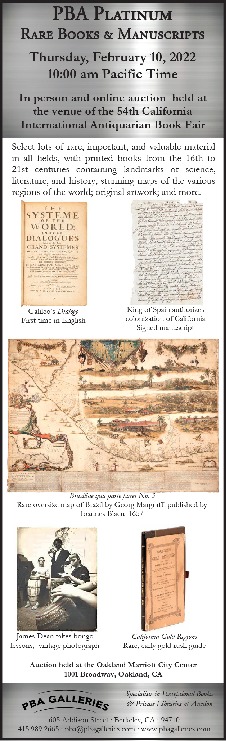 PBA PLATINUM
RARE BOOKS & MANUSCRIPTS
Thursday, February 10, 2022
10:00 am Pacific Time
In person and online auction held at
the venue of the 54th California
International Antiquarian Book Fair
Select lots of rare, important, and valuable material
in all fields, with printed books from the 16th to
21st centuries containing landmarks of science,
literature, and history, stunning maps of the various
regions of the world; original artwork; and more.
THE
SYSTEME
OF THE
WORLD:
DIALOGUES
Galileo's Dialogo
First time in English
King of Spain authorizes
colonization of California
Signed manuscript
Brasiliae
Rare oversize map of Brazil by Georg Margraff published by
Joannes Blaeu
James Dean takes bongo
lessons, vintage photograph
California Gold Regions
Rare, early gold rush guide
Auction held at the Oakland Marriott City Center
1001 Broadway, Oakland, CA
PBA GALLERIES
Specialists in Exceptional Books
& Private Libraries at Auction
605 Addison Street Berkeley, CA
415.989.2665 pba@pbagalleries.com www.pbagalleries.com